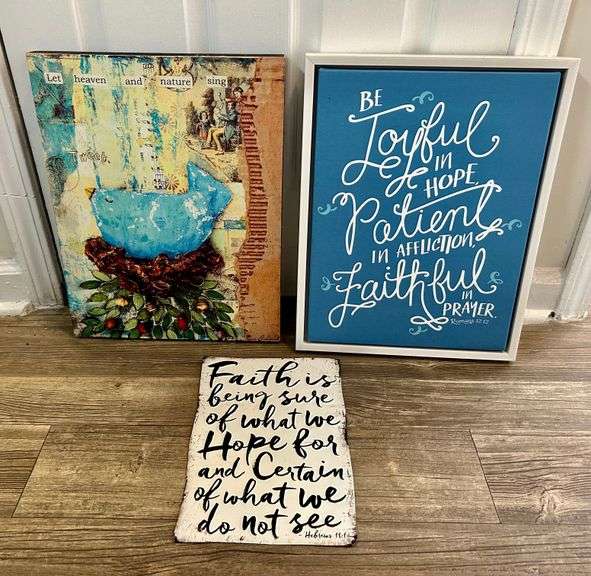 Let heaven and nature sing
BE
Joyful
IN
HOPE,
Patient
IN AFFLICTION,
Faithful
IN
PRAYER.
Romans 12:12
Faith is
being sure
of what we
Hope for
and Certain
of what we
do not see
- Hebrews 11:1